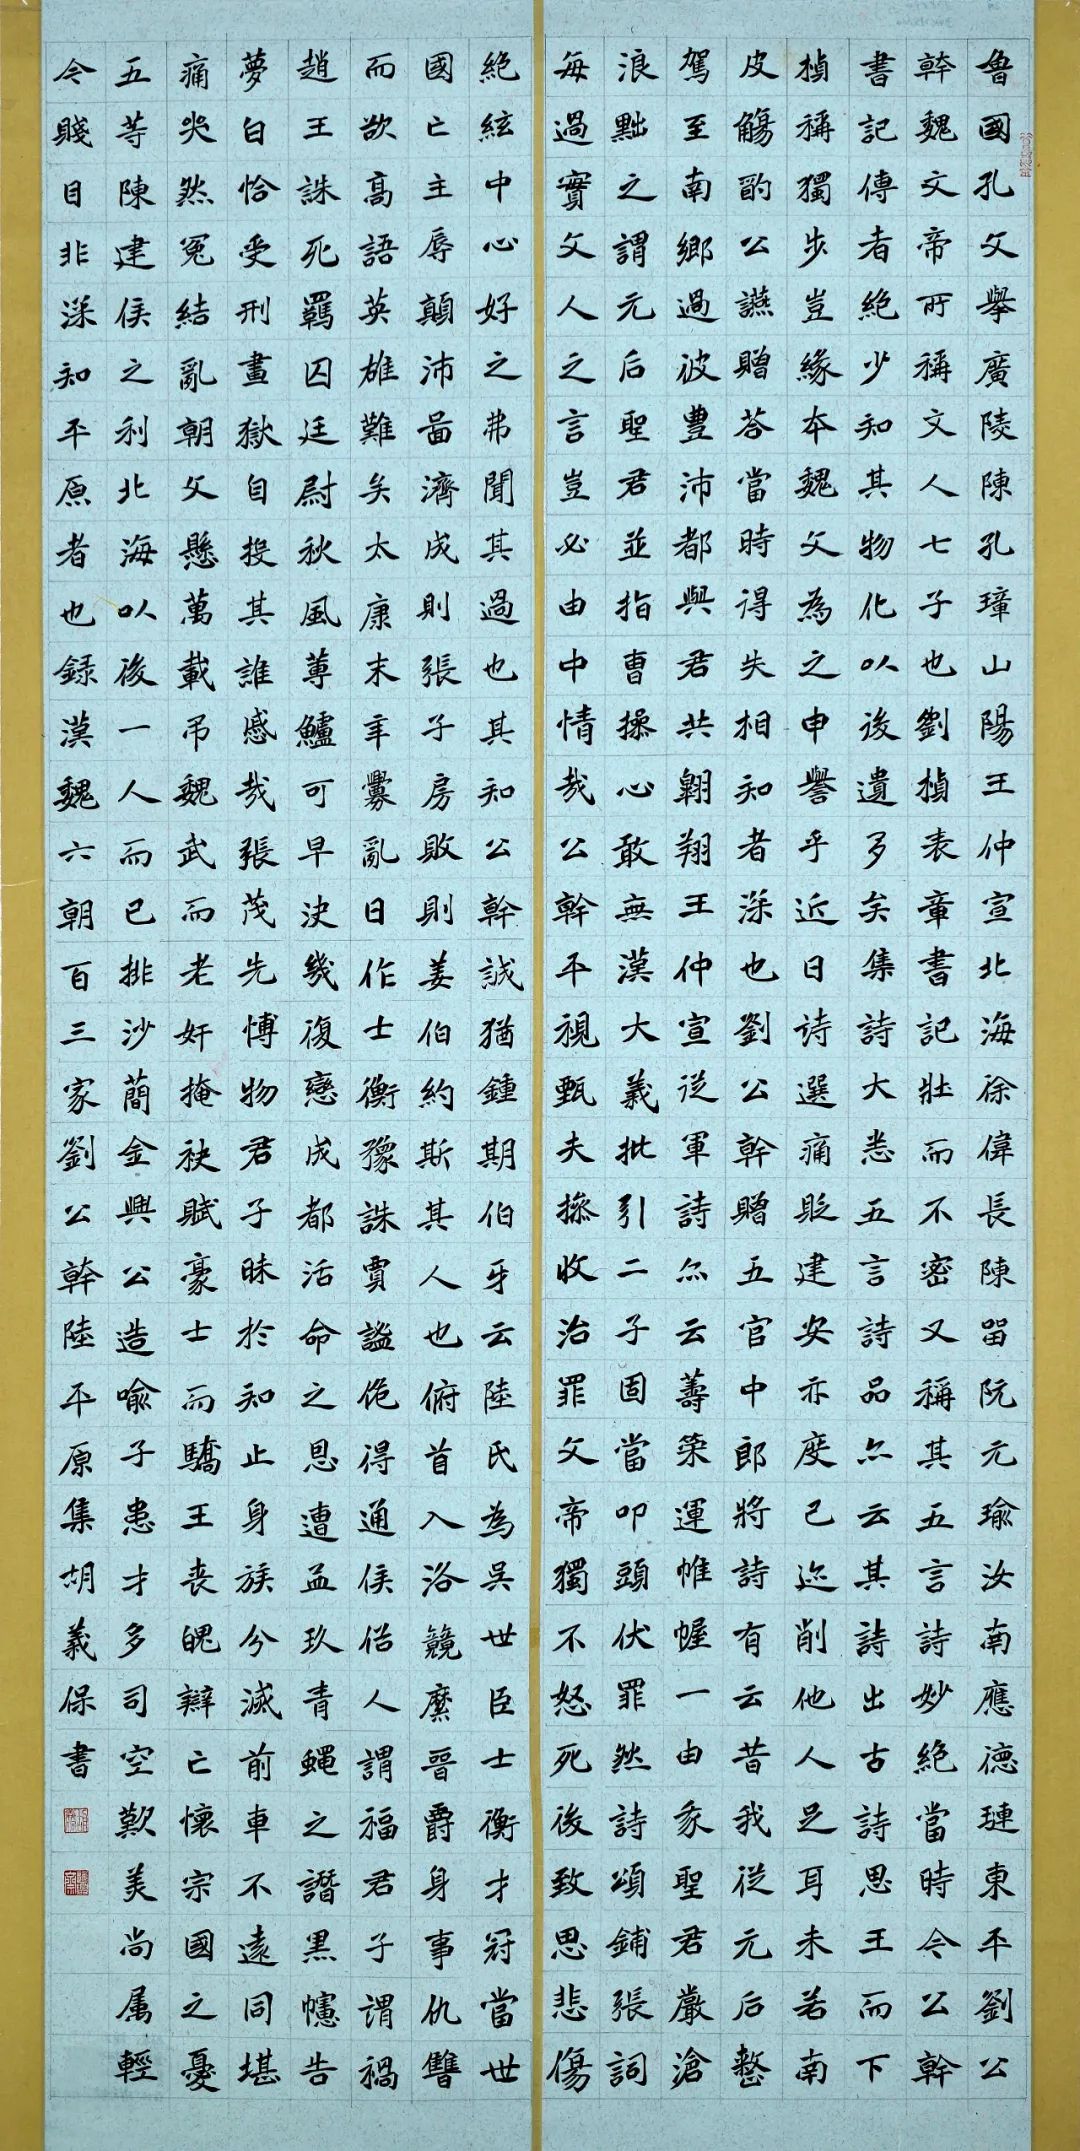 魯國孔文舉廣陵陳孔璋山陽王仲宣北海徐偉長陳留阮元瑜汝南應德璉東平劉公
幹魏文帝所稱文人七子也劉楨表章書記壯而不密又稱其五言詩妙絕當時今公幹
書記傳者絕少知其物化以後遺多矣集詩大悉五言詩品亦云其詩出古詩思王而下
楨稱獨步豈緣本魏文為之申譽乎近日诗選痛貶建安亦度己迹削他人足耳未若南
皮觴酌公讌贈答當時得失相知者深也劉公幹贈五官中郎將詩有云昔我從元后整
駕至南鄉過彼豐沛都與君共翱翔王仲宣從軍詩亦云籌策運帷幄一由我聖君嚴滄
浪黜之謂元后聖君並指曹操心敢無漢大義批引二子固當叩頭伏罪然詩頌鋪張詞
每過實文人之言豈必由中情哉公幹平視甄夫操收治罪文帝獨不怒死後致思悲傷
絕絃中心好之弗聞其過也其知公幹誠猶鍾期伯牙云陸氏為吳世臣士衡才冠當世
國亡主辱顛沛啚濟成則張子房敗則姜伯約斯其人也俯首入洛竸縻晉爵身事仇讎
而欲高語英雄難矣太康末年釁亂日作士衡豫誅賈謐佹得通侯俗人謂福君子謂禍
趙王誅死羈囚廷尉秋風蓴鱸可早決幾復戀成都活命之恩遭孟玖青蠅之譖黑幰告
夢白恰受刑畫獄自投其誰慼哉張茂先博物君子昧於知止身族分滅前車不遠同堪
痛哭然冤結亂朝文懸萬載弔魏武而老奸掩袂賦豪士而驕王丧魄辯亡懷宗國之憂
五等陳建侯之利北海以後一人而已排沙簡金興公造喻子患才多司空歎美尚属輕
今賤目非深知平原者也録漢魏六朝百三家劉公幹陸平原集胡義保書